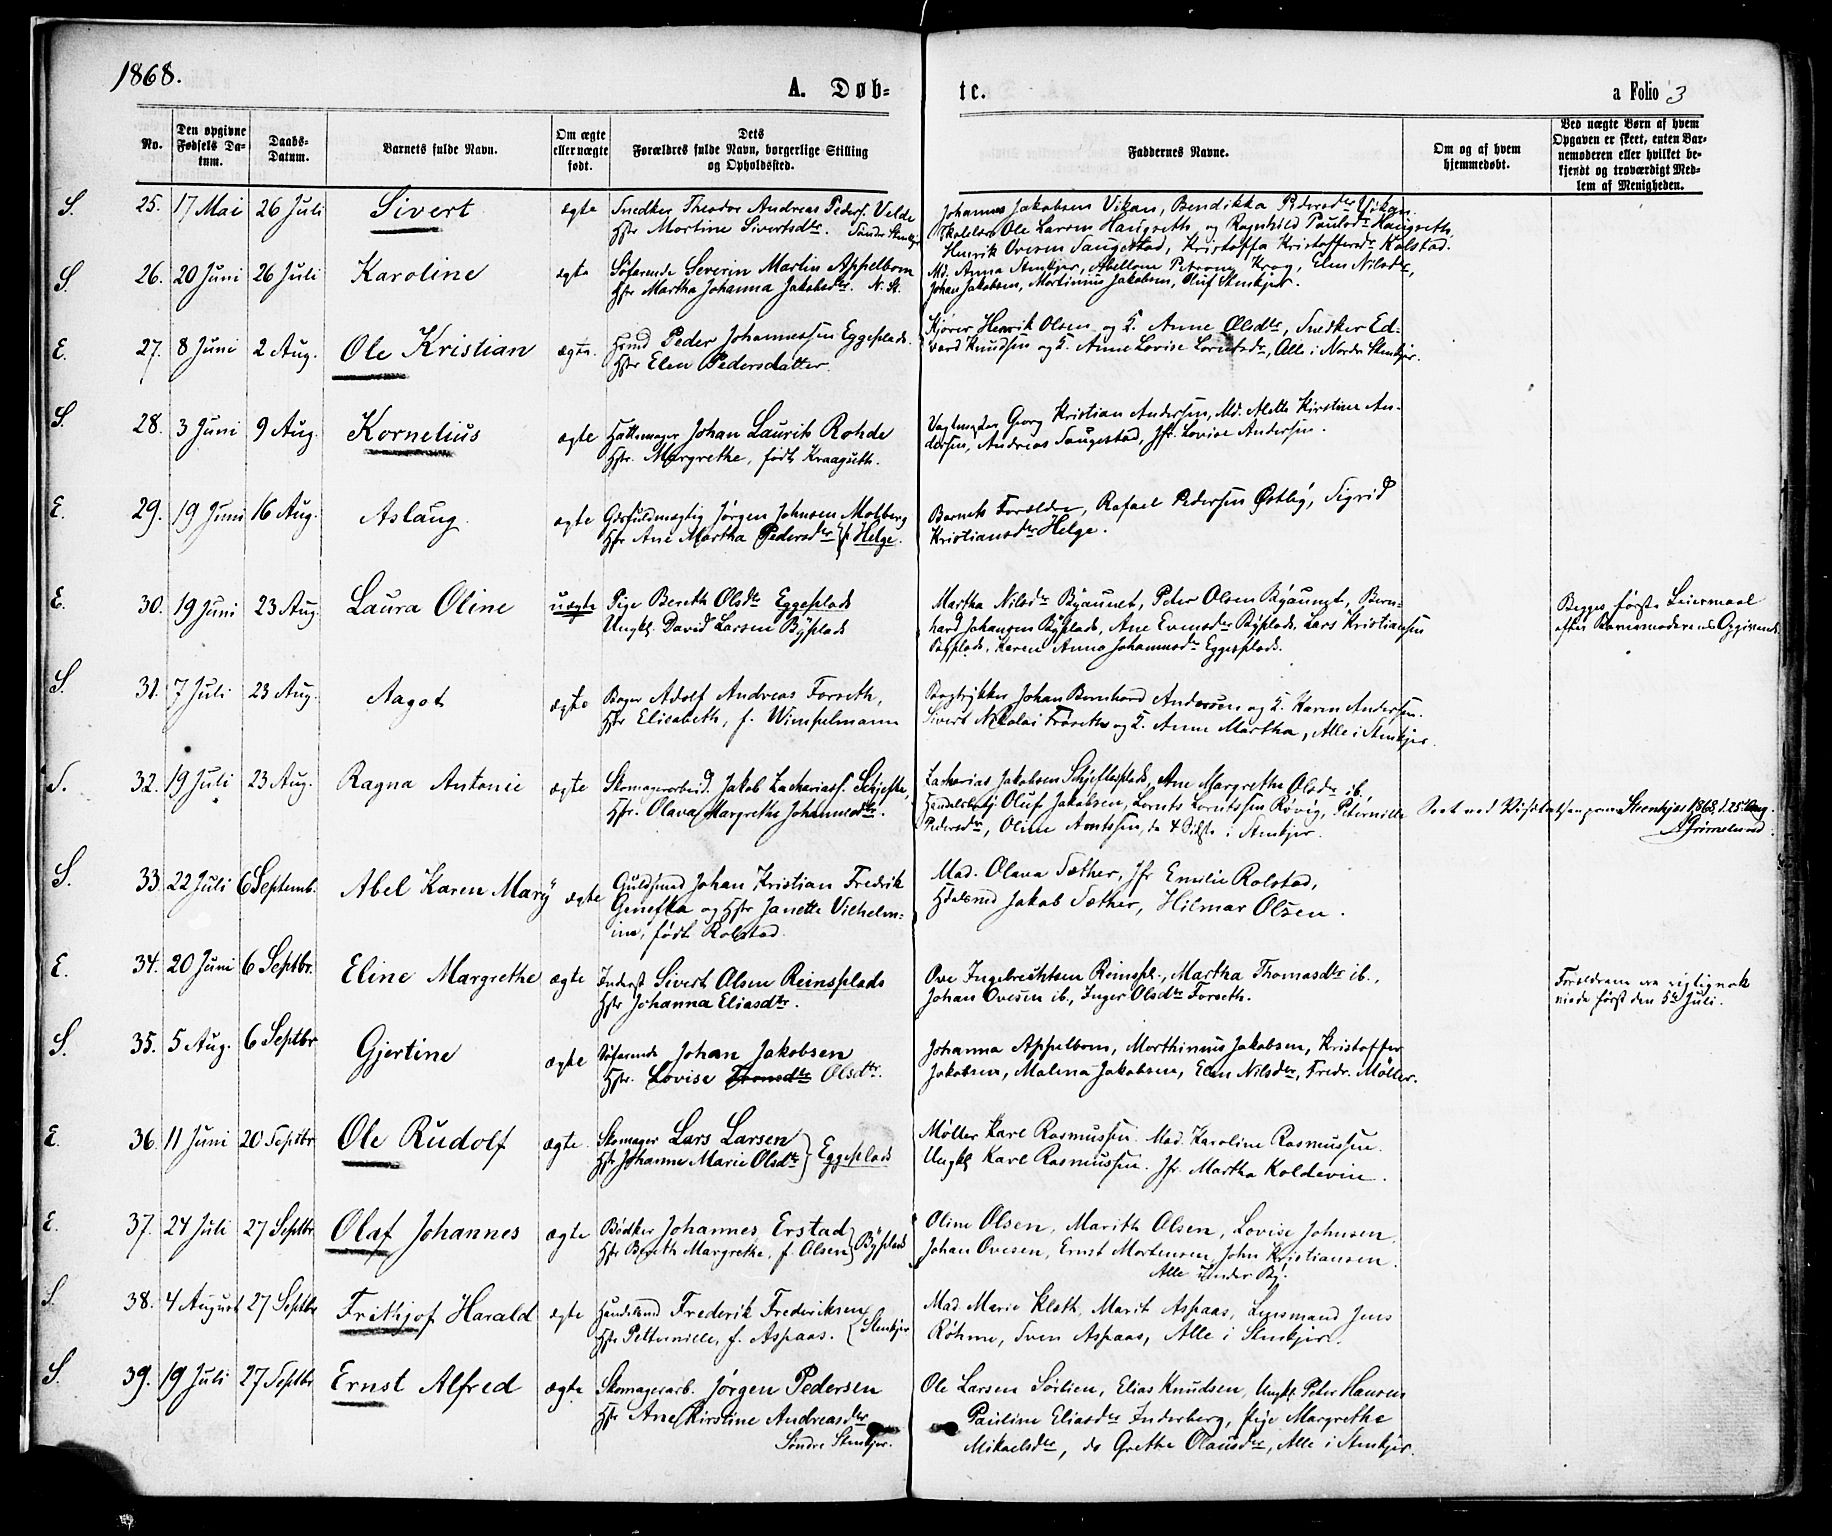 1868.
A. Døb-
te.
a Folio 3
No.
Den opgivne
Fødsels Da-
tum.
Daabs-
Datum.
Barnets fulde Navn.
Om ægte
eller uægte
født.
Dets
Forældres fulde Navn, borgerlige Stilling
og Opholdssted.
Faddernes Navne.
Om og af hvem
hjemmedøbt.
Ved uægte Børn af hvem
Opgaven er skeet, enten Bar-
nemoderen eller hvilket be-
kjendt og troværdigt Med-
lem af Menigheden.
S. 25. 17 Mai 26 Juli Sivert ægte Snedker Theodor Andreas Peders. Velde
Hstr Mortine Sivertsdtr. Søndre Stenkjer
Johannes Jakobsen Vikan, Bendikka Pedersdtr Vikan,
Ole Larsen Haugseth og Ragnhild Paulsdtr Haugseth,
Henrik Ovesen Saugestad, Kristoffa Kristoffersdtr Kolstad.
S. 26. 20 Juni 26 Juli Karoline ægte Søfarende Severin Martin Appelbom
Hstr Martha Johanna Jakobsdtr. N. St.
Md. Anna Stenkjer, Abellone Petrone Krog, Elen Nilsdtr,
Johan Jakobsen, Mortinius Jakobsen, Oluf Stenkjer.
E. 27. 8 Juni 2 Aug. Ole Kristian ægte. Hsmd Peder Johannessen Eggeplads.
Hstr Elen Pedersdatter.
Kjører Henrik Olsen og K. Anne Olsdtr, Snedker Ed-
vard Knudsen og K. Anne Lovise Lorntsdtr, Alle i Nordre Stenkjer.
S. 28. 3 Juni 9 Aug. Kornelius ægte Hattemager Johan Laurits Rohde
Hstr. Margrethe, født Kraagseth.
Vagtmester Georg Kristian Andersen, Md. Aletta Kirstine An-
dersen, Andreas Saugestad, Jfr. Lovise Andersen.
E. 29. 19 Juni 16 Aug. Aslaug. ægte Gdsfuldmægtig Jørgen Johnsen Molberg
Hstr Ane Martha Pedersdtr } p. Helge.
Barnets Forældre, Rafael Pedersen Østby, Sigrid
Kristiansdtr Helge.
E. 30. 19 Juni 23 Aug. Laura Oline uægte Pige Bereth Olsdtr Eggeplads
Ungkl. David Larsen Byplads
Martha Nilsdtr Byaunet, Peter Olsen Byaunet, Bern-
hard Johansen Byplads, Ane Evensdtr Byplads. Lars Kristiansen
Byplads, Karen Anna Johannesdtr Eggeplads.
Begges første Leiermaal
efter Barnemoderens Opgivende.
S. 31. 7 Juli 23 Aug. Aagot ægte Bager Adolf Andreas Forseth,
Hstr Elisabeth, f. Wimpelmann
Bogtrykker Johan Bernhard Andersen og K. Karen Andersen.
Sivert Nikolai Forseth og K. Anne Martha, Alle i Stenkjer.
S. 32. 19 Juli 23 Aug. Ragna Antonie ægte Skomagerarbeid. Jakob Zachariass. Skjefte,
Hstr. Olava Margrethe Johannesdtr.
Zacharias Jakobsen Skjefteplads, Ane Margrethe Olsdtr ib.,
Handelsbetj. Oluf Jakobsen, Lornts Lorntssen Røvig, Peternille
Pedersdtr, Oline Arntssen, de 4 Sidste i Stenkjer.
Seet ved Visitatsen paa Steenkjær 1868 d. 25 Aug.
Grimelund.
S. 33. 22 Juli 6 Septemb. Abel Karen Mary ægte Guldsmed Johan Kristian Fredrik
Genefka og Hstr Janetta Vilhelm-
ine, født Rolstad.
Mad. Olava Sæther, Jfr Emilie Rolstad,
Hdelsmd Jakob Sæther, Hilmar Olsen.
E. 34. 20 Juni 6 Septbr. Eline Margrethe ægte Inderst Sivert Olsen Reinsplads
Hstr Johanna Eliasdtr.
Ove Ingebrichtsen Reinspl., Martha Thomasdtr ib.,
Johan Ovesen ib., Inger Olsdtr Forseth.
Forældrene ere rigtignok
viede først den 5te Juli.
S. 35. 5 Aug. 6 Septbr Gjertine ægte Søfarende Johan Jakobsen
Hstr. Lovise Olsdtr.
Johanna Appelbom, Morthinius Jakobsen, Kristoffer
Jakobsen, Malena Jakobsen, Elen Nilsdtr, Fredr. Møller.
E. 36. 11 Juni 20 Septbr Ole Rudolf ægte Skomager Lars Larsen
Hstr Johanne Marie Olsdtr } Eggeplads
Møller Karl Rasmussen. Mad. Karoline Rasmussen.
Ungkl Karl Rasmussen. Jfr. Martha Koldevin.
E. 37. 24 Juli 27 Septbr Olaf Johannes ægte Bødker Johannes Erstad
Hstr Bereth Margrethe, f. Olsen } Byplads
Oline Olsen, Marith Olsen, Lovise Johnsen,
Johan Ovesen, Ernst Mortensen, John Kristiansen.
Alle under By.
S. 38. 4 August 27 Septbr Frithjof Harald ægte Handelsmd Frederik Frederiksen
Hstr Petternille, f. Aspaas. } Stenkjer
Mad Marie Kloth, Marit Aspaas, Lensmand Jens
Røhme, Sven Aspaas, Alle i Stenkjer.
S. 39. 19 Juli 27 Septbr Ernst Alfred ægte Skomagerarb. Jørgen Pedersen
Hstr Ane Kirstine Andreasdtr
Søndre Stenkjer.
Ole Larsen Sørlien, Elias Knudsen, Ungkl. Peter Hansen
Pauline Eliasdtr Inderberg, Pige Margrethe
Mikaelsdtr, do Grethe Olausdtr, Alle i Stenkjer.